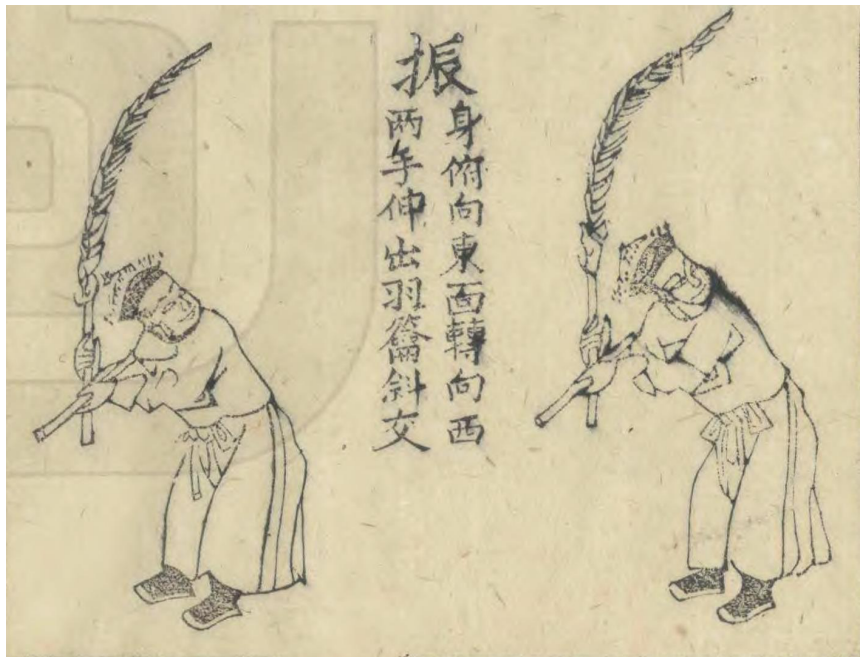 振
身俯向東面轉向西
两手伸出羽籥斜交